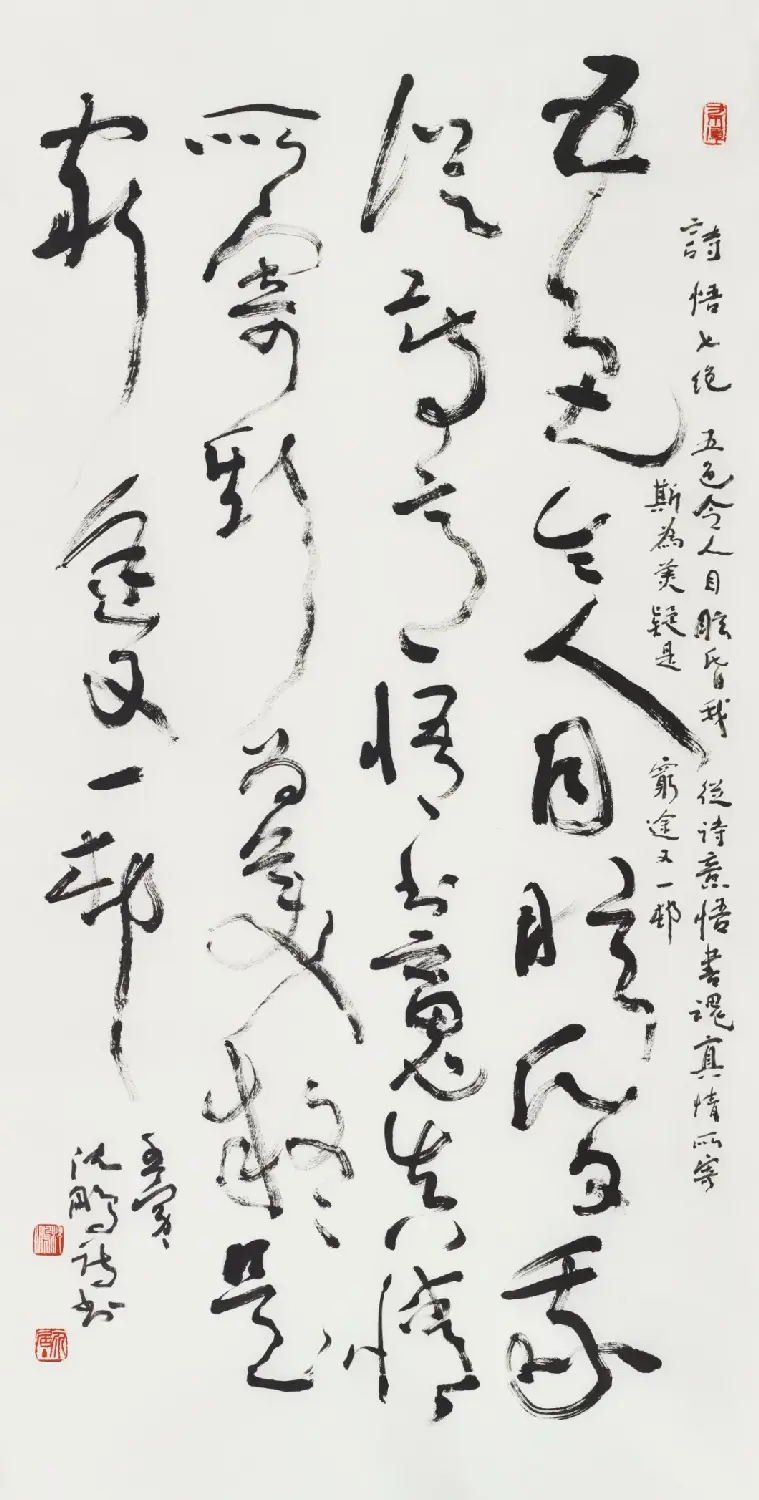 詩悟七绝 五色令人目眩昏我 從诗意悟書魂真情所寄
斯為美疑是 窮途又一邨
五色令人目眩昏我
從诗意悟书魂真情
所寄斯为美疑是
窮途又一邨
沈鹏诗书